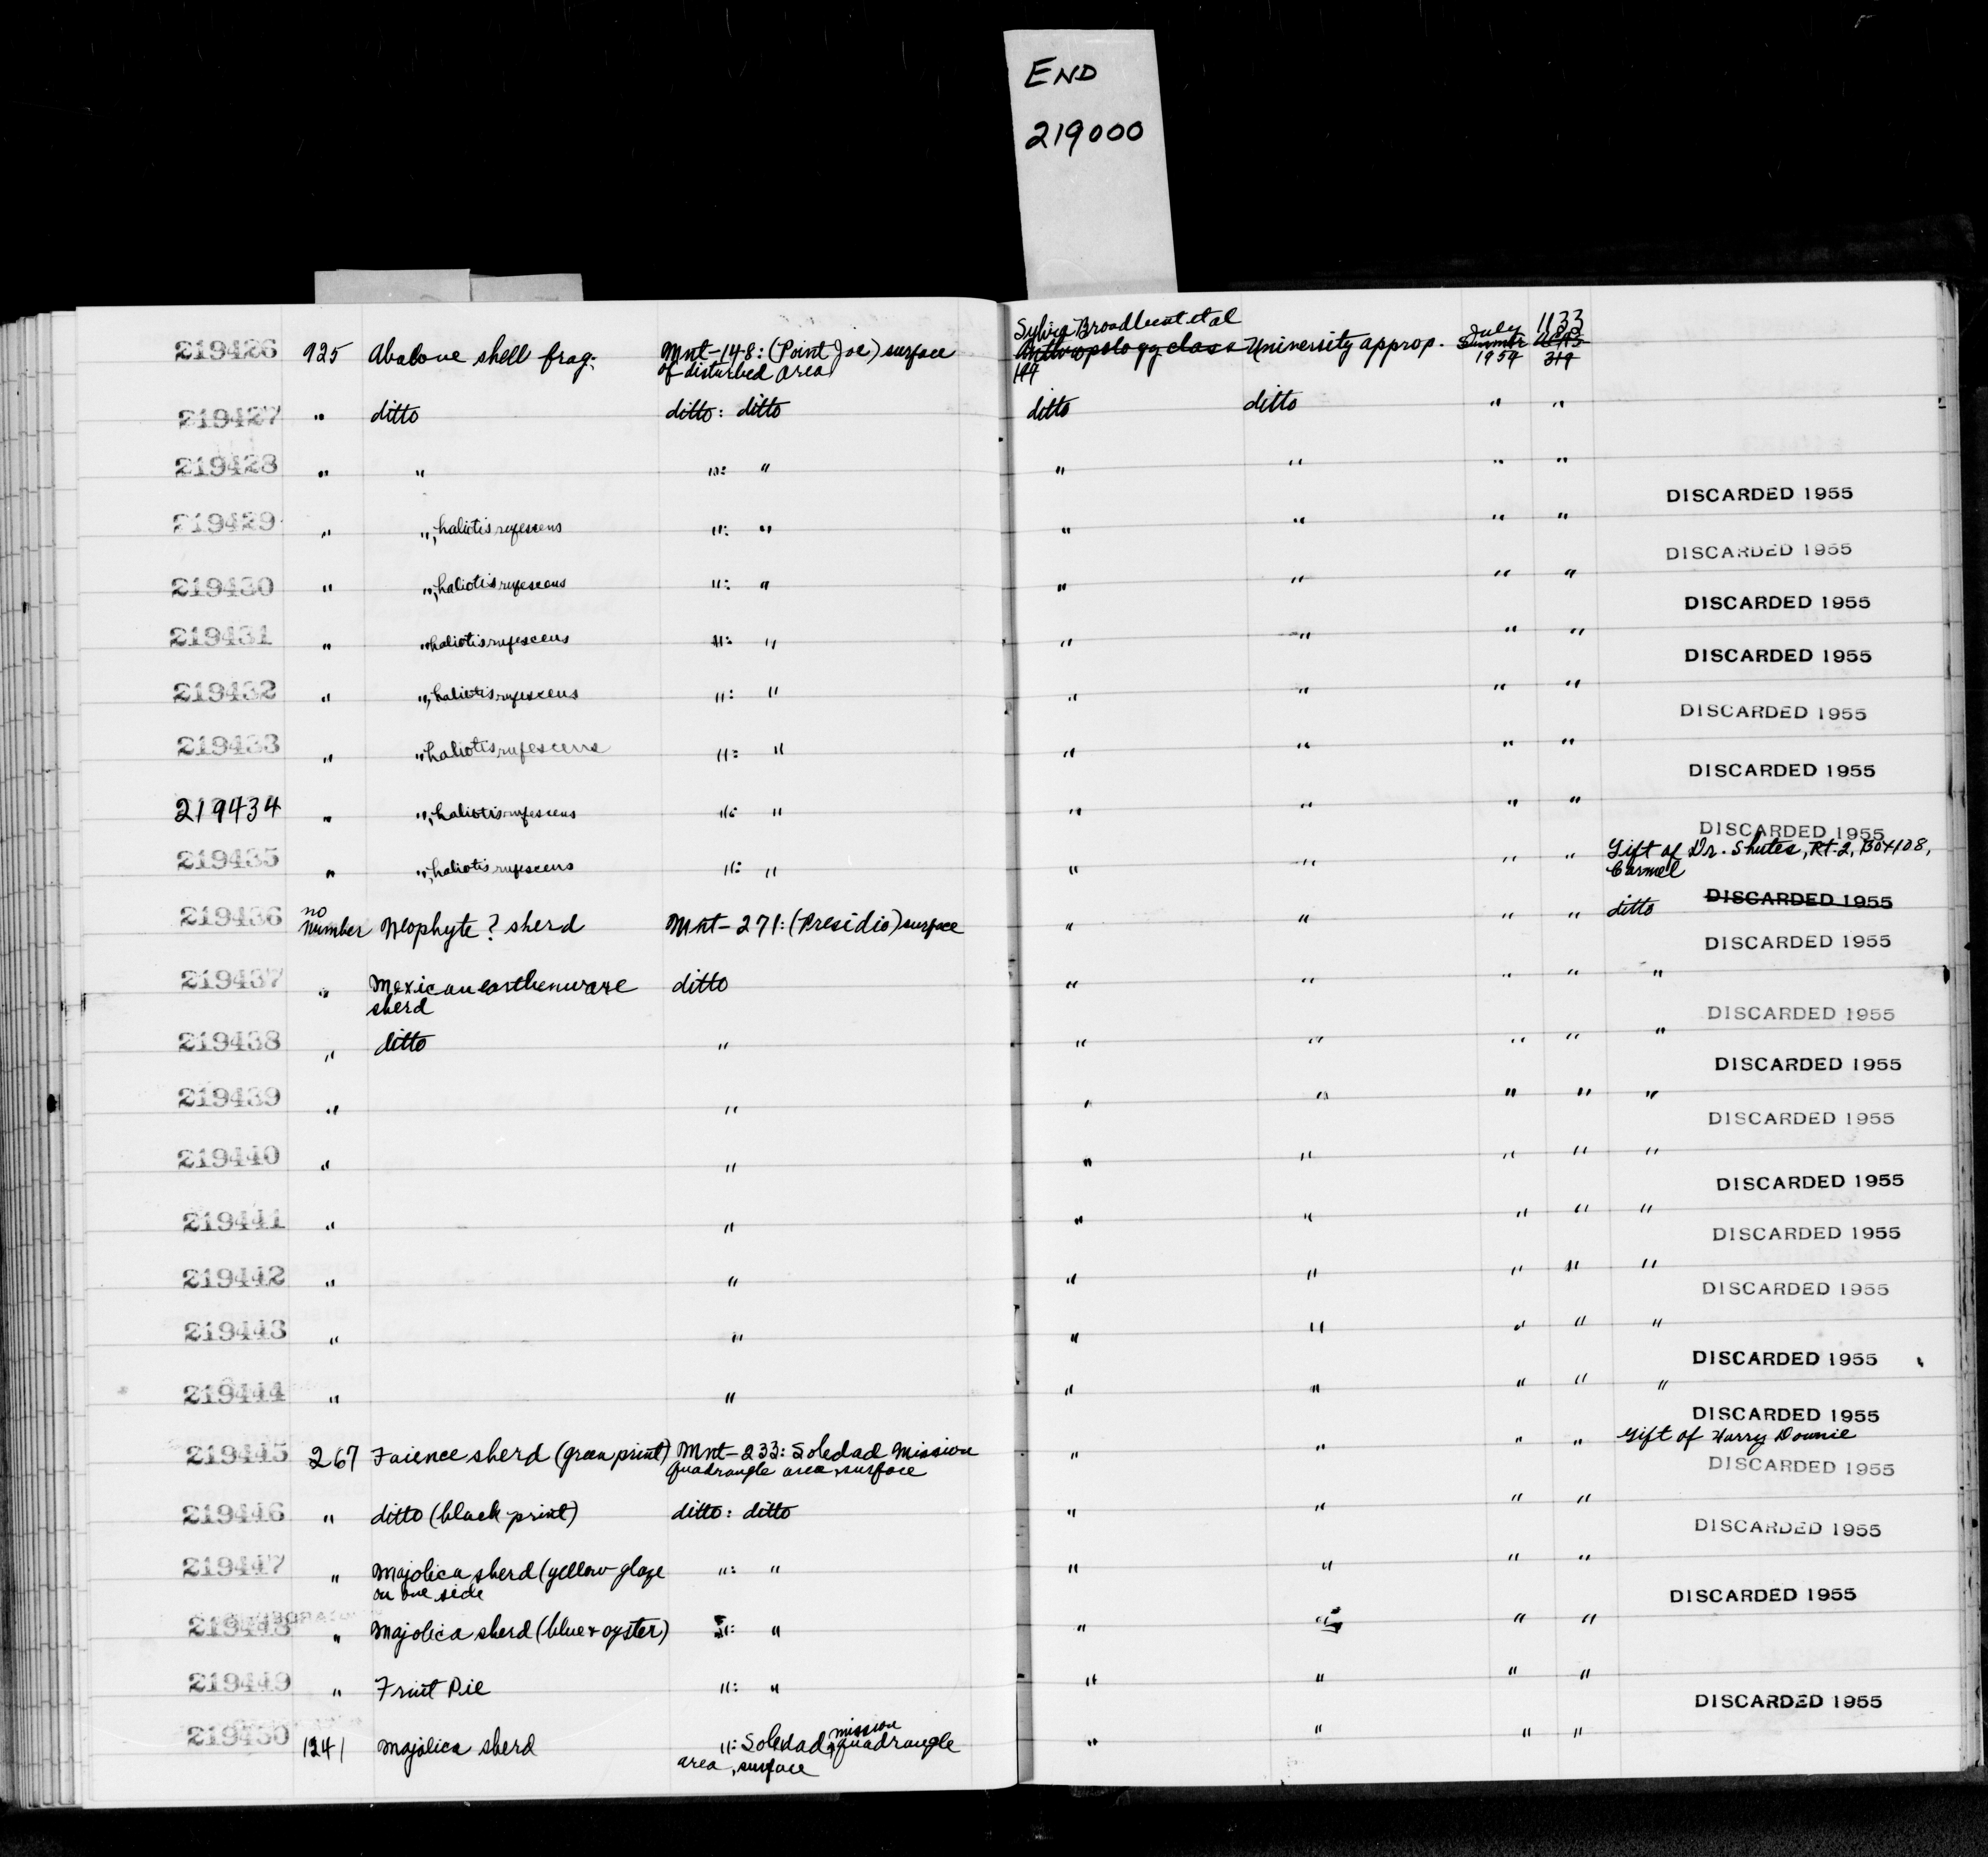 END
219000
219426 925 Abalone shell frag. Mnt-148: (Point Joe) surface of disturbed area Sylvia Broadbent et al Anthropology class 197 University approp. July Summer 1954 1133 UCAS 319
219427 " ditto ditto: ditto ditto ditto " "
219428 " " ": " " " " "
DISCARDED 1955
219429 " ", haliotis rufescens ": " " " " "
DISCARDED 1955
219430 " ", haliotis rufescens ": " " " " "
DISCARDED 1955
219431 " " haliotis rufescens ": " " " " "
DISCARDED 1955
219432 " ", haliotis rufescens ": " " " " "
DISCARDED 1955
219433 " " haliotis rufescens ": " " " " "
DISCARDED 1955
219434 " ", haliotis rufescens ": " " " " "
DISCARDED 1955
219435 " ", haliotis rufescens ": " " " " " Gift of Dr. Shutes, Rt. 2, Box 108, Carmel
DISCARDED 1955
219436 no number Neophyte? sherd Mnt-271: (Presidio) surface " " " " ditto
DISCARDED 1955
219437 " Mexican earthenware sherd ditto " " " " "
DISCARDED 1955
219438 " ditto " " " " " "
DISCARDED 1955
219439 " " " " " " "
DISCARDED 1955
219440 " " " " " " "
DISCARDED 1955
219441 " " " " " " "
DISCARDED 1955
219442 " " " " " " "
DISCARDED 1955
219443 " " " " " " "
DISCARDED 1955
219444 " " " " " " "
DISCARDED 1955
219445 267 Faience sherd (green print) Mnt-233: Soledad Mission Quadrangle area, surface " " " " Gift of Harry Downie
DISCARDED 1955
219446 " ditto (black print) ditto: ditto " " " "
DISCARDED 1955
219447 " Majolica sherd (yellow glaze on one side ": " " " " "
DISCARDED 1955
219448 " Majolica sherd (blue & oyster) ": " " " " "
219449 " Fruit Pie ": " " " " "
DISCARDED 1955
219450 1241 Majolica sherd ": Soledad mission quadrangle area, surface " " " "